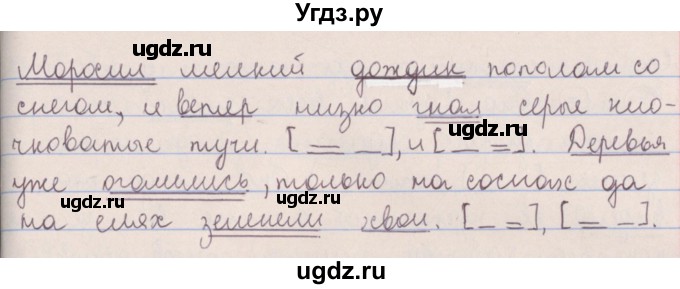 Угдз.ру
Моросил мелкий дождик пополам со
снегом, и ветер низко гнал серые кло-
чковатые тучи. [= —], и [— =]. Деревья
уже оголились, только на соснах да
на елях зеленели хвои. [— =], [= —].
ugdz.ru
ugdz.ru
ugdz.ru
ugdz.ru
ugdz.ru
ugdz.ru
ugdz.ru